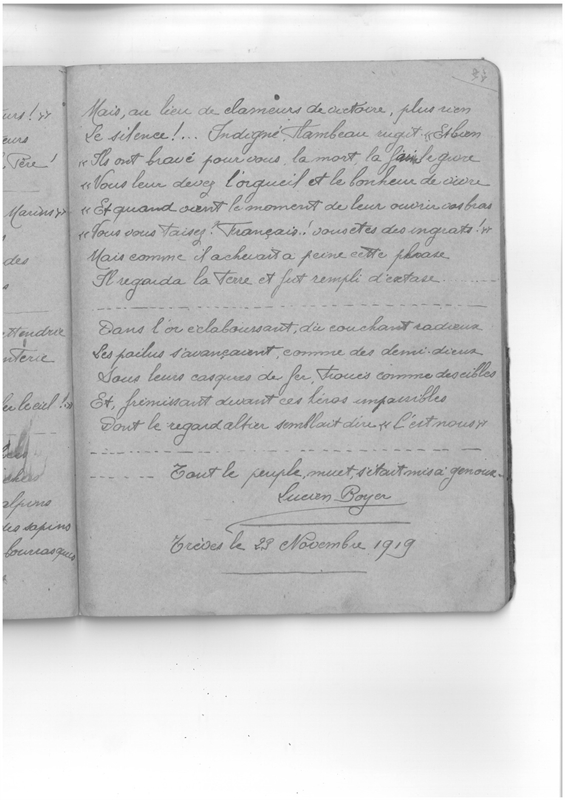 37
Mais, au lieu de clameurs de victoire, plus rien
Le silence !... Indigné Flambeau rugit. « Et bien
« Ils ont bravé pour vous, la mort, la faim le givre
« Vous leur devez l'orgueil et le bonheur de vivre
« Et quand vient le moment de leur ouvrir vos bras
« Vous vous taisez ! Français ! vous etes des ingrats ! »
Mais comme il achevait a peine cette phrase
Il regarda la Terre et fut rempli d'extase
Dans l'or éclaboussant, du couchant radieux
Les poilus s'avançaient, comme des demi-dieux
Sous leurs casques de fer, Troués comme des cibles
Et, frémissant devant ces héros impassibles
Dont le regard altier semblait dire « C'est nous »
Tout le peuple, muet, s'était mis à genoux.
Lucien Boyer
Trèves le 29 Novembre 1919
urs ! »
eurs
Père !
Marins »
s
des
s
ttendrie
nterie
le ciel ! »
alpins
des sapins
bourrasques